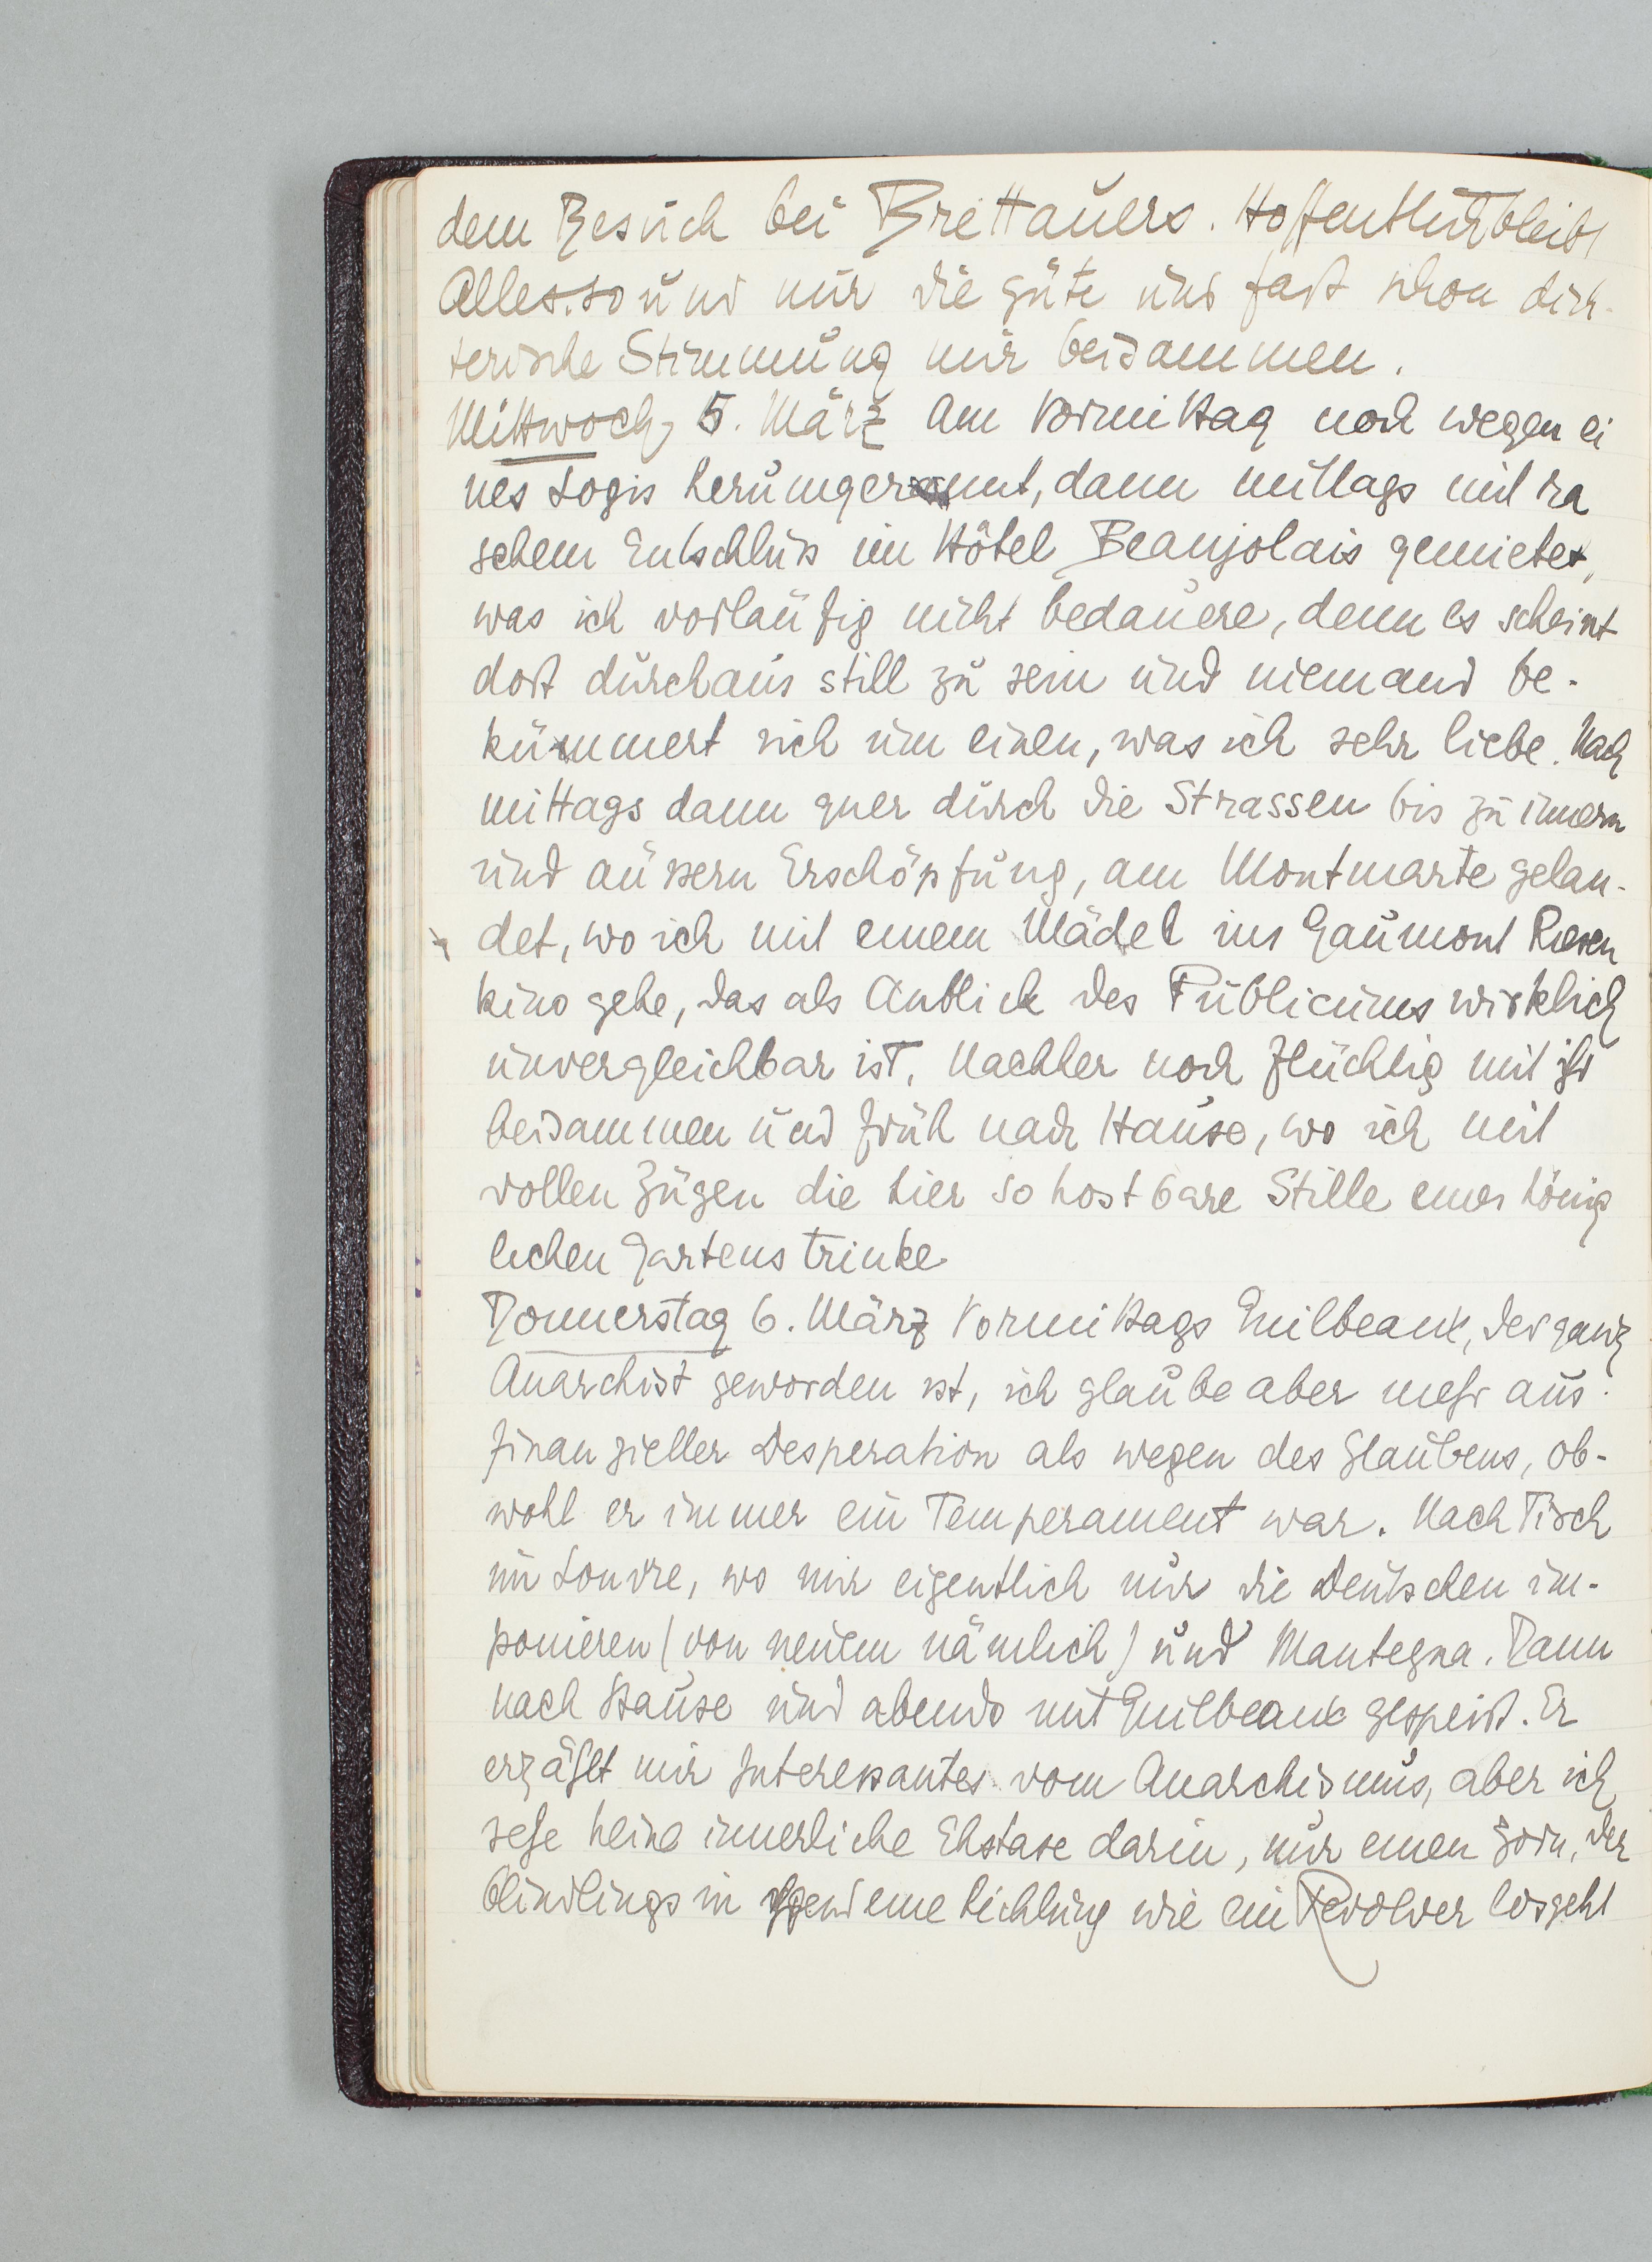 dem Besuch bei Brettauers. Hoffentlich bleibt
Alles so und nur die gute und fast schon dich-
terische Stimmung mir beisammen.
Mittwoch, 5. März Am Vormittag noch wegen ei
nes Logis herumgerannt, dann mittags mit ra
schem Entschluss im Hôtel Beaujolais gemietet,
was ich vorläufig nicht bedauere, denn es scheint
dort durchaus still zu sein und niemand be-
kümmert sich um einen, was ich sehr liebe. Nach
mittags dann quer durch die Strassen bis zu innern
und äussern Erschöpfung, am Montmarte gelan-
det, wo ich mit einem Mädel ins Gaumont Riesen
kino gehe, das als Anblick des Publicums wirklich
unvergleichbar ist. Nachher noch flüchtig mit ihr
beisammen und früh nach Hause, wo ich mit
vollen Zügen die hier so kostbare Stille eines könig
lichen Gartens trinke
Donnerstag 6. März Vormittags Guilbeaux, der ganz
Anarchist geworden ist, ich glaube aber mehr aus
finanzieller Desperation als wegen des Glaubens, ob-
wohl er immer ein Temperament war. Nach Tisch
im Louvre, wo mir eigentlich nur die Deutschen im-
ponieren (von neuem nämlich) und Mantegna. Dann
nach Hause und abends mit Guilbeaux gespeist. Er
erzählt mir Interessantes vom Anarchismus, aber ich
sehe keine innerliche Ekstase darin, nur einen Zorn, der
blindlings in irgend eine Richtung wie ein Revolver losgeht